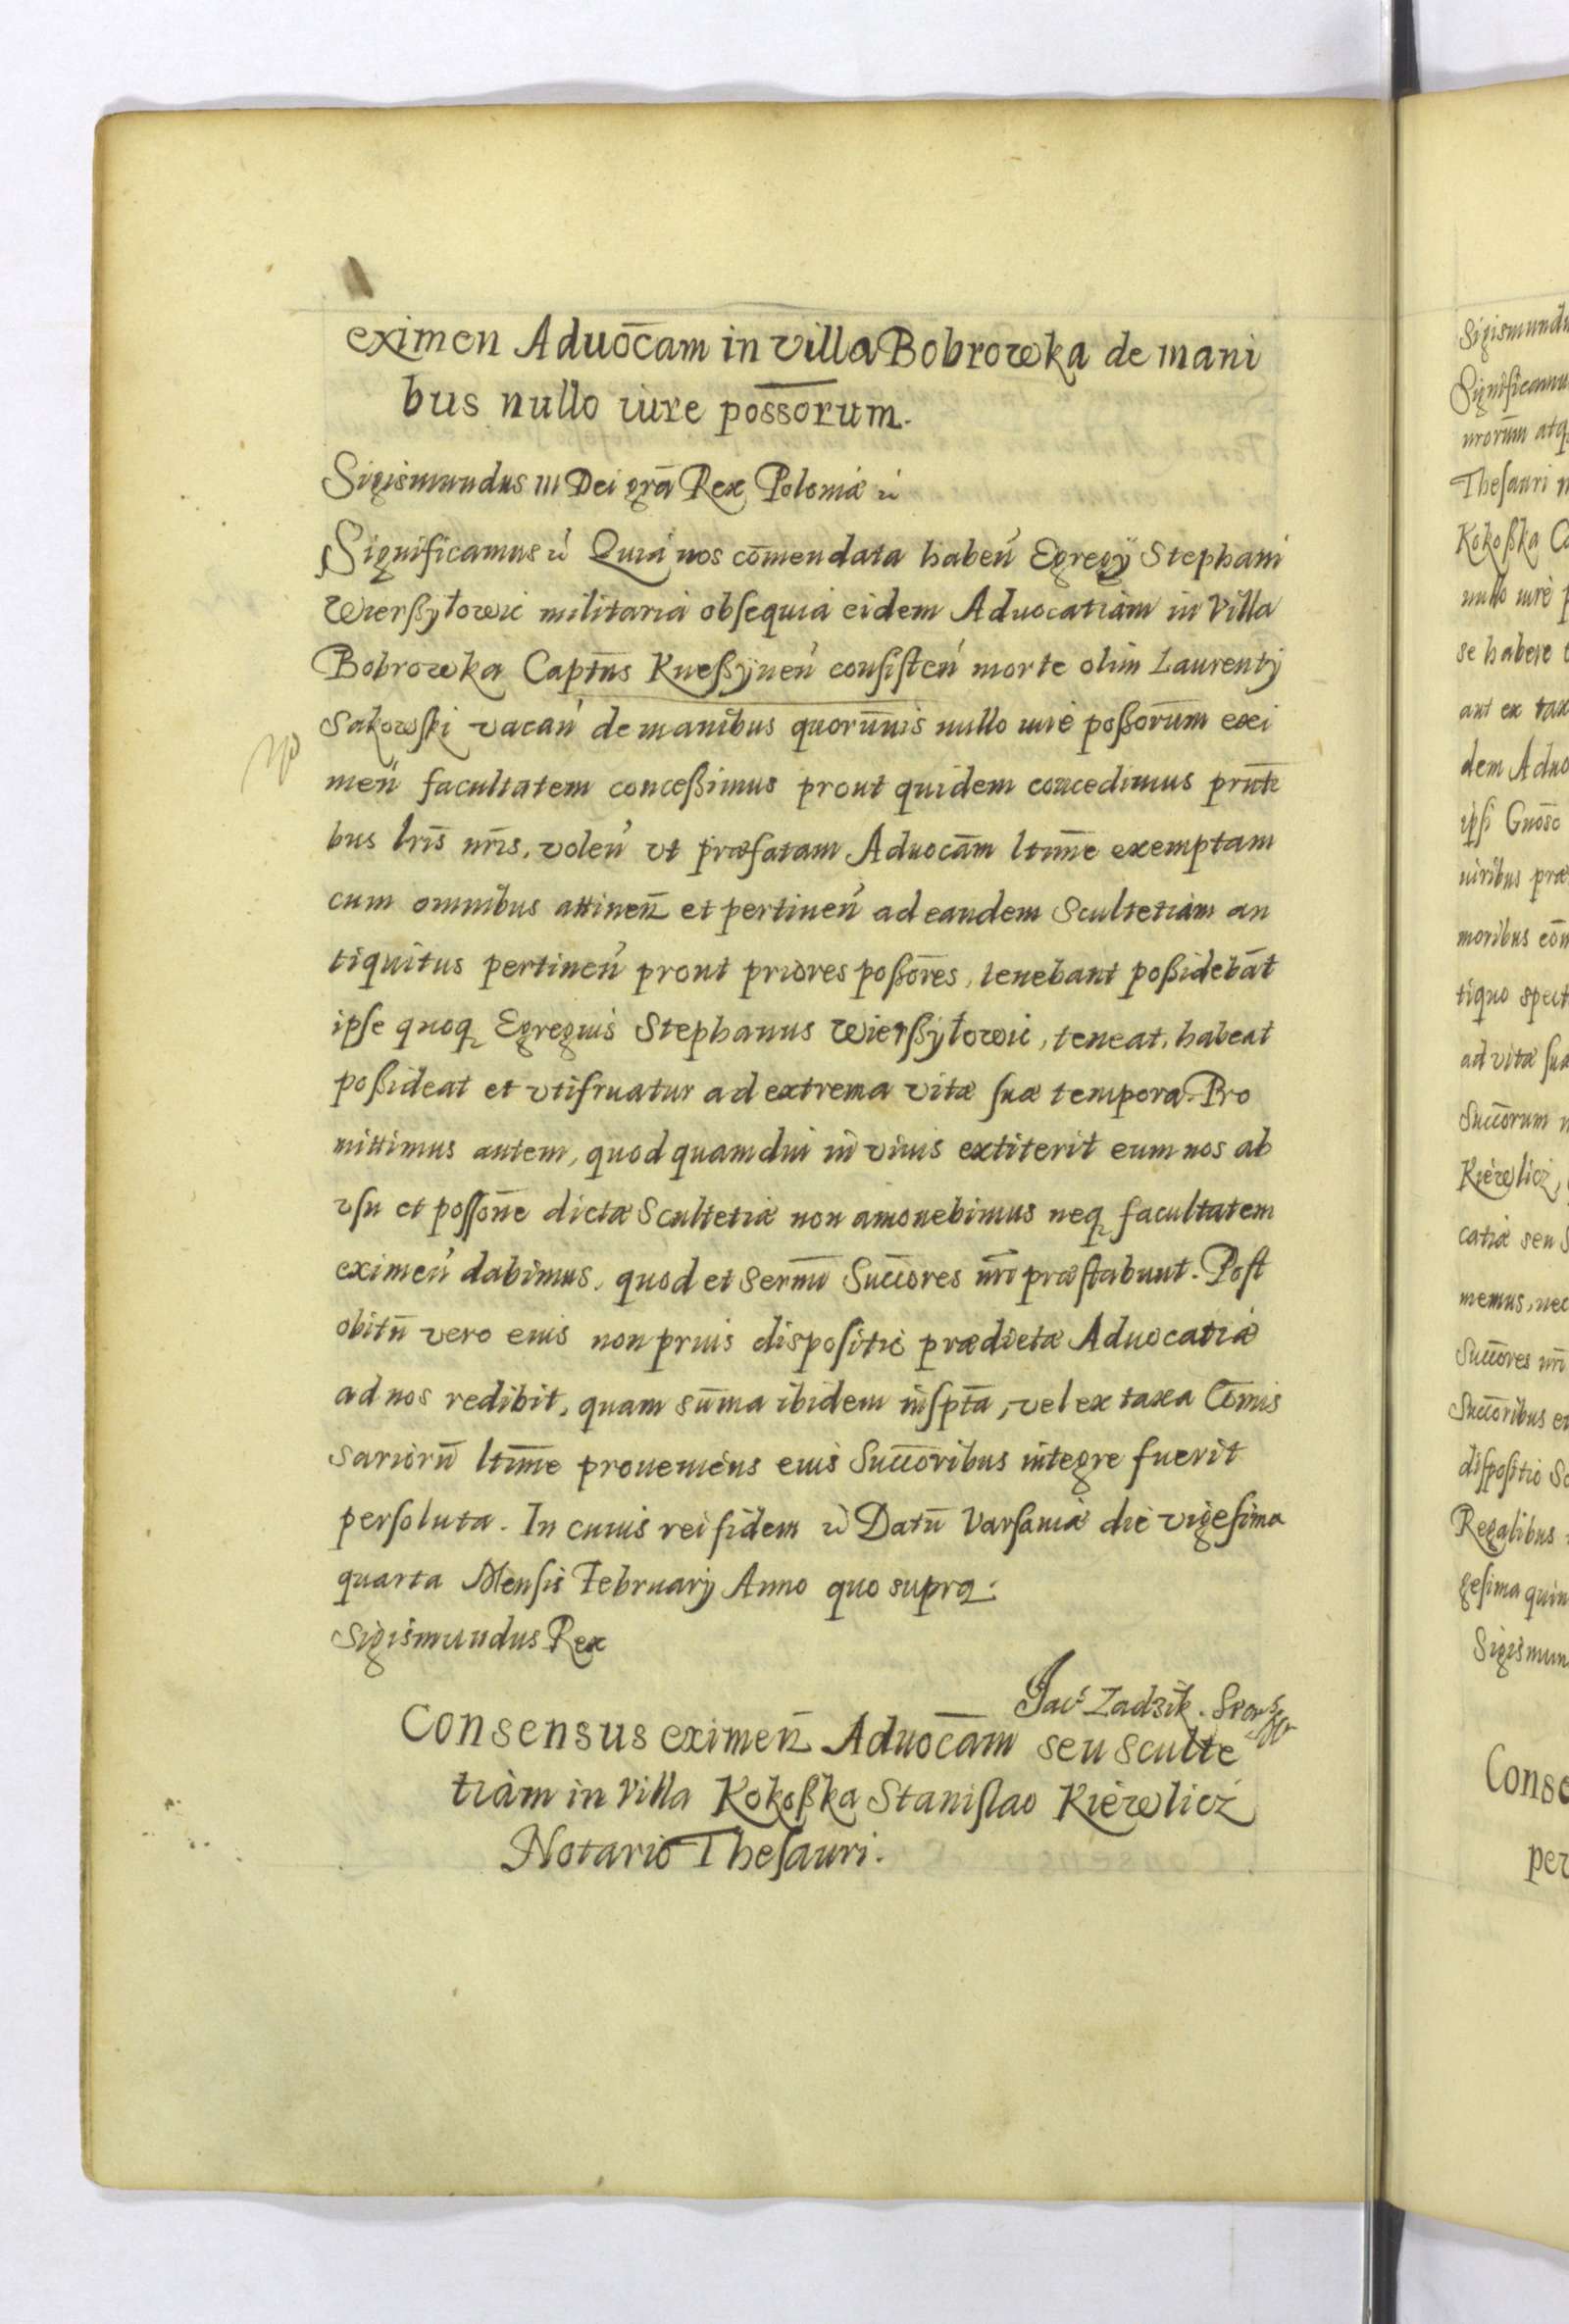 eximen Aduoc̄am in villa Bobrowka de mani
bus nullo iure possorum.
Sigismundus III Dei grā Rex Poloniæ
Significamus Quia nos cōmendata haben̄ Egregÿ Stephani
Wierßyłowic militaria obsequia eidem Aduocatiam in Villa
Bobrowka Captūs Kneßÿnen̄ consisten̄ morte olim Laurentÿ
Sakowski vacan̄ de manibus quorum̄uis nullo iure poßorūm exi
men̄ facultatem conceßimus prout quidem concedimus prn̄ti
bus lrīs nrīs, volen̄ vt præfatam Aduocām ltim̄e exemptam
cum omnibus attinen̄ et pertinen̄ ad eandem Scultetiam an
tiquitus pertinen̄ prout priores poßōres, tenebant poßidebāt
ipse quoq Egregius Stephanus Wierßyłowic, teneat, habeat
poßideat et vtifruatur ad extrema vitæ suæ tempora. Pro
mittimus autem, quod quamdiu in viuis extiterit eum nos ab
vsu et possōne dictæ Scultetiæ non amonebimus neq facultatem
eximen̄ dabimus, quod et Serm̄i Succōres nrī præstabunt. Post
obitū vero eius non prius dispositio prædictæ Aduocatiæ
ad nos redibit, quam sūma ibidem inspt̄a, vel ex taxa Cōmis
sariorū ltim̄e proueniens eius Succōribus integre fuerit
persoluta. In cuius rei fidem Datū Varsauiæ die vigesima
quarta Mensis Februarÿ Anno quo supra.
Sigismundus Rex
Jac⁹ Zadzik.
Consensus eximen̄ Aduocām seu sculte
tiam in Villa Kokoßka Stanislao Kierwlicz
Notario Thesauri.
Sigismundu
Significamu
nrorūm atq
Thesauri
Kokoßka
nullo iure
se habere
aut ex tax
dem Aduo
ipsi Gnōso
uiribus præ
moribus
tiquo spect
ad vitæ sua
Succōrum
Kierwlicz,
catiæ seu
memus, nec
Succōres nrī
Succōribus
dispositio
Regalibus
gesima quin
Sigismun
Conse
per